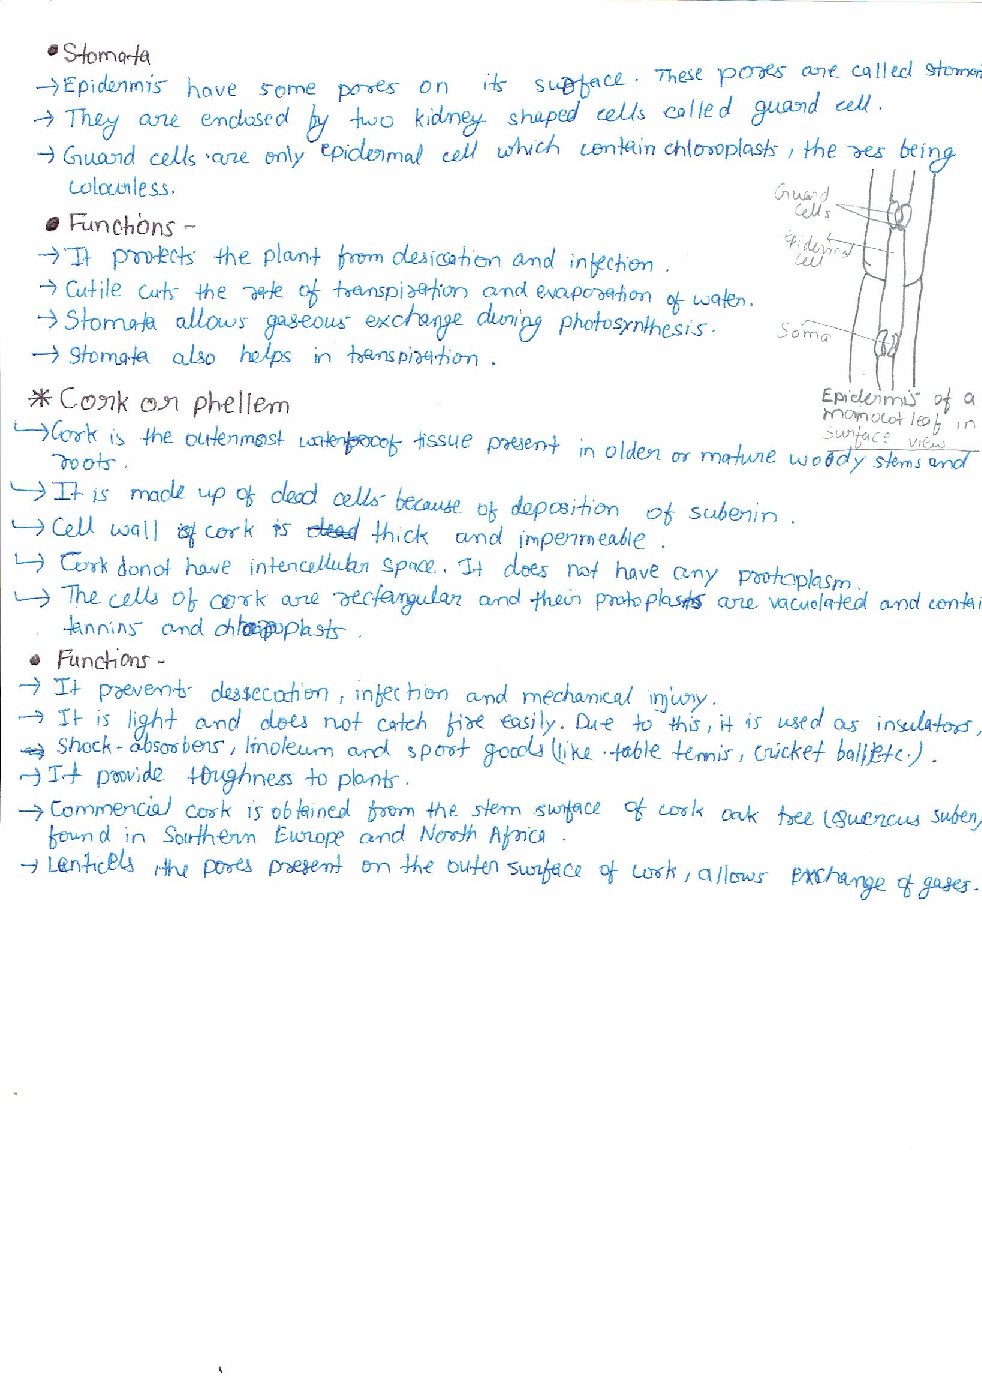 • Stomata
→ Epidermis have some pores on its surface. These pores are called stomat
→ They are enclosed by two kidney shaped cells called guard cell.
→ Guard cells are only epidermal cell which contain chloroplasts, the res being
colourless.
Guard
cells
Epidermal
cell
• Functions -
→ It protects the plant from desiccation and infection.
→ Cutile cuts the rate of transpiration and evaporation of water.
→ Stomata allows gaseous exchange during photosynthesis.
Soma
→ Stomata also helps in transpiration.
Epidermis of a
monocot leaf in
surface view
* Cork or phellem
↳ Cork is the outermost waterproof tissue present in older or mature woody stems and
roots.
↳ It is made up of dead cells because of deposition of suberin.
↳ Cell wall of cork is dead thick and impermeable.
↳ Cork donot have intercellular space. It does not have any protoplasm.
↳ The cells of cork are rectangular and their protoplasts are vacuolated and contai
tannins and chloroplasts.
• Functions -
→ It prevents dessecation, infection and mechanical injury.
→ It is light and does not catch fire easily. Due to this, it is used as insulators,
→ Shock-absorbers, linoleum and sport goods (like table tennis, cricket ball etc.).
→ It provide toughness to plants.
→ Commercial cork is obtained from the stem surface of cork oak tree (Quercus suber,
found in Southern Europe and North Africa.
→ Lenticels, the pores present on the outer surface of cork, allows exchange of gases.